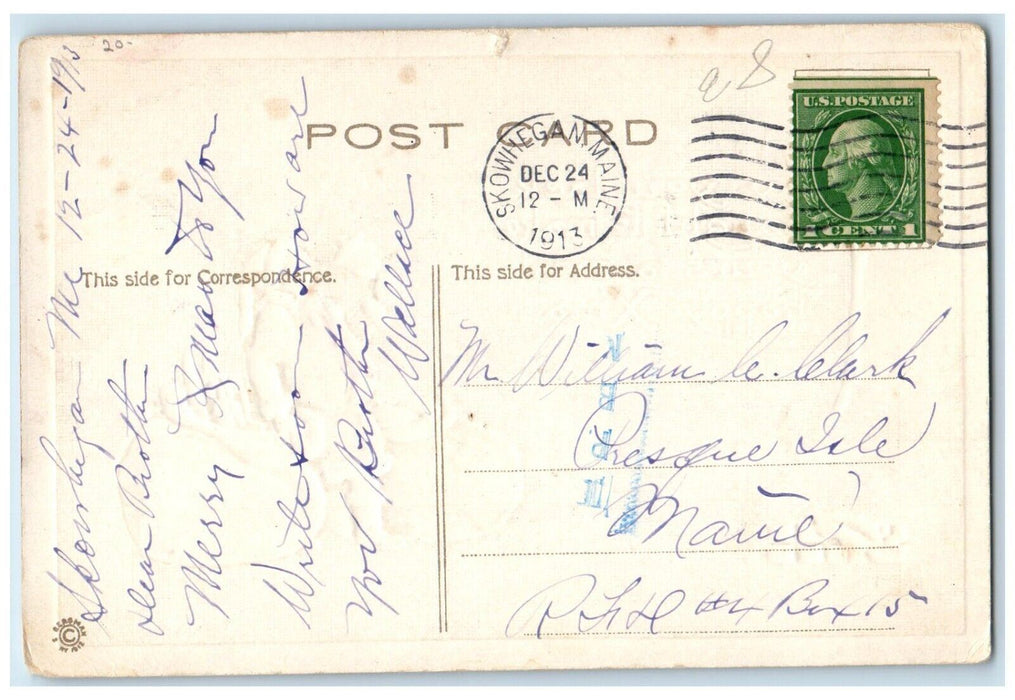 20-
98
POST CARD
SKOWHEGAN, MAINE
DEC 24
12 - M
1913
U.S. POSTAGE
1 CENT 1
This side for Correspondence.
This side for Address.
Skowhegan Me 12-24-1913
Dear Brother
Merry Xmas to You
Write soon How are
You Brother Wallace
Mr William C. Clark
Presque Isle
Maine
RFD #4 Box 15
BERGMAN
©
NY 1913